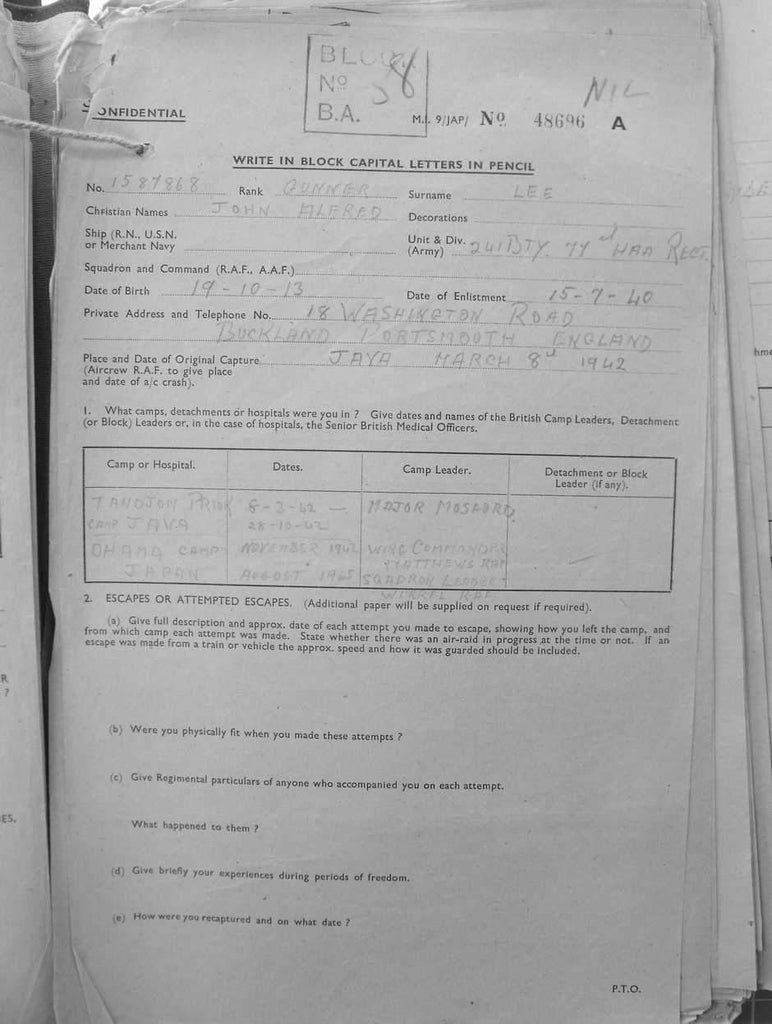 BLOCK
No 58
B.A.
NIL
CONFIDENTIAL
M.I. 9/JAP/ No 48696 A
WRITE IN BLOCK CAPITAL LETTERS IN PENCIL
No. 1587868 Rank GUNNER Surname LEE
Christian Names JOHN ALFRED Decorations
Ship (R.N., U.S.N. or Merchant Navy
Unit & Div. (Army) 241 BTY. 77nd HAA REGT.
Squadron and Command (R.A.F., A.A.F.)
Date of Birth 19-10-13 Date of Enlistment 15-7-40
Private Address and Telephone No. 18 WASHINGTON ROAD
BUCKLAND PORTSMOUTH ENGLAND
Place and Date of Original Capture JAVA MARCH 8th 1942
(Aircrew R.A.F. to give place
and date of a/c crash).
1. What camps, detachments or hospitals were you in ? Give dates and names of the British Camp Leaders, Detachment
(or Block) Leaders or, in the case of hospitals, the Senior British Medical Officers.
Camp or Hospital. Dates. Camp Leader. Detachment or Block
Leader (if any).
TANDJON PRIOK 8-3-42 — MAJOR
CAMP JAVA 28-10-42
OHAMA CAMP NOVEMBER 1942 WING COMMANDER
MATTHEWS RAF
JAPAN AUGUST 1945 SQADRON LEADER
RAF
2. ESCAPES OR ATTEMPTED ESCAPES. (Additional paper will be supplied on request if required).
(a) Give full description and approx. date of each attempt you made to escape, showing how you left the camp, and
from which camp each attempt was made. State whether there was an air-raid in progress at the time or not. If an
escape was made from a train or vehicle the approx. speed and how it was guarded should be included.
(b) Were you physically fit when you made these attempts ?
(c) Give Regimental particulars of anyone who accompanied you on each attempt.
What happened to them ?
(d) Give briefly your experiences during periods of freedom.
(e) How were you recaptured and on what date ?
P.T.O.